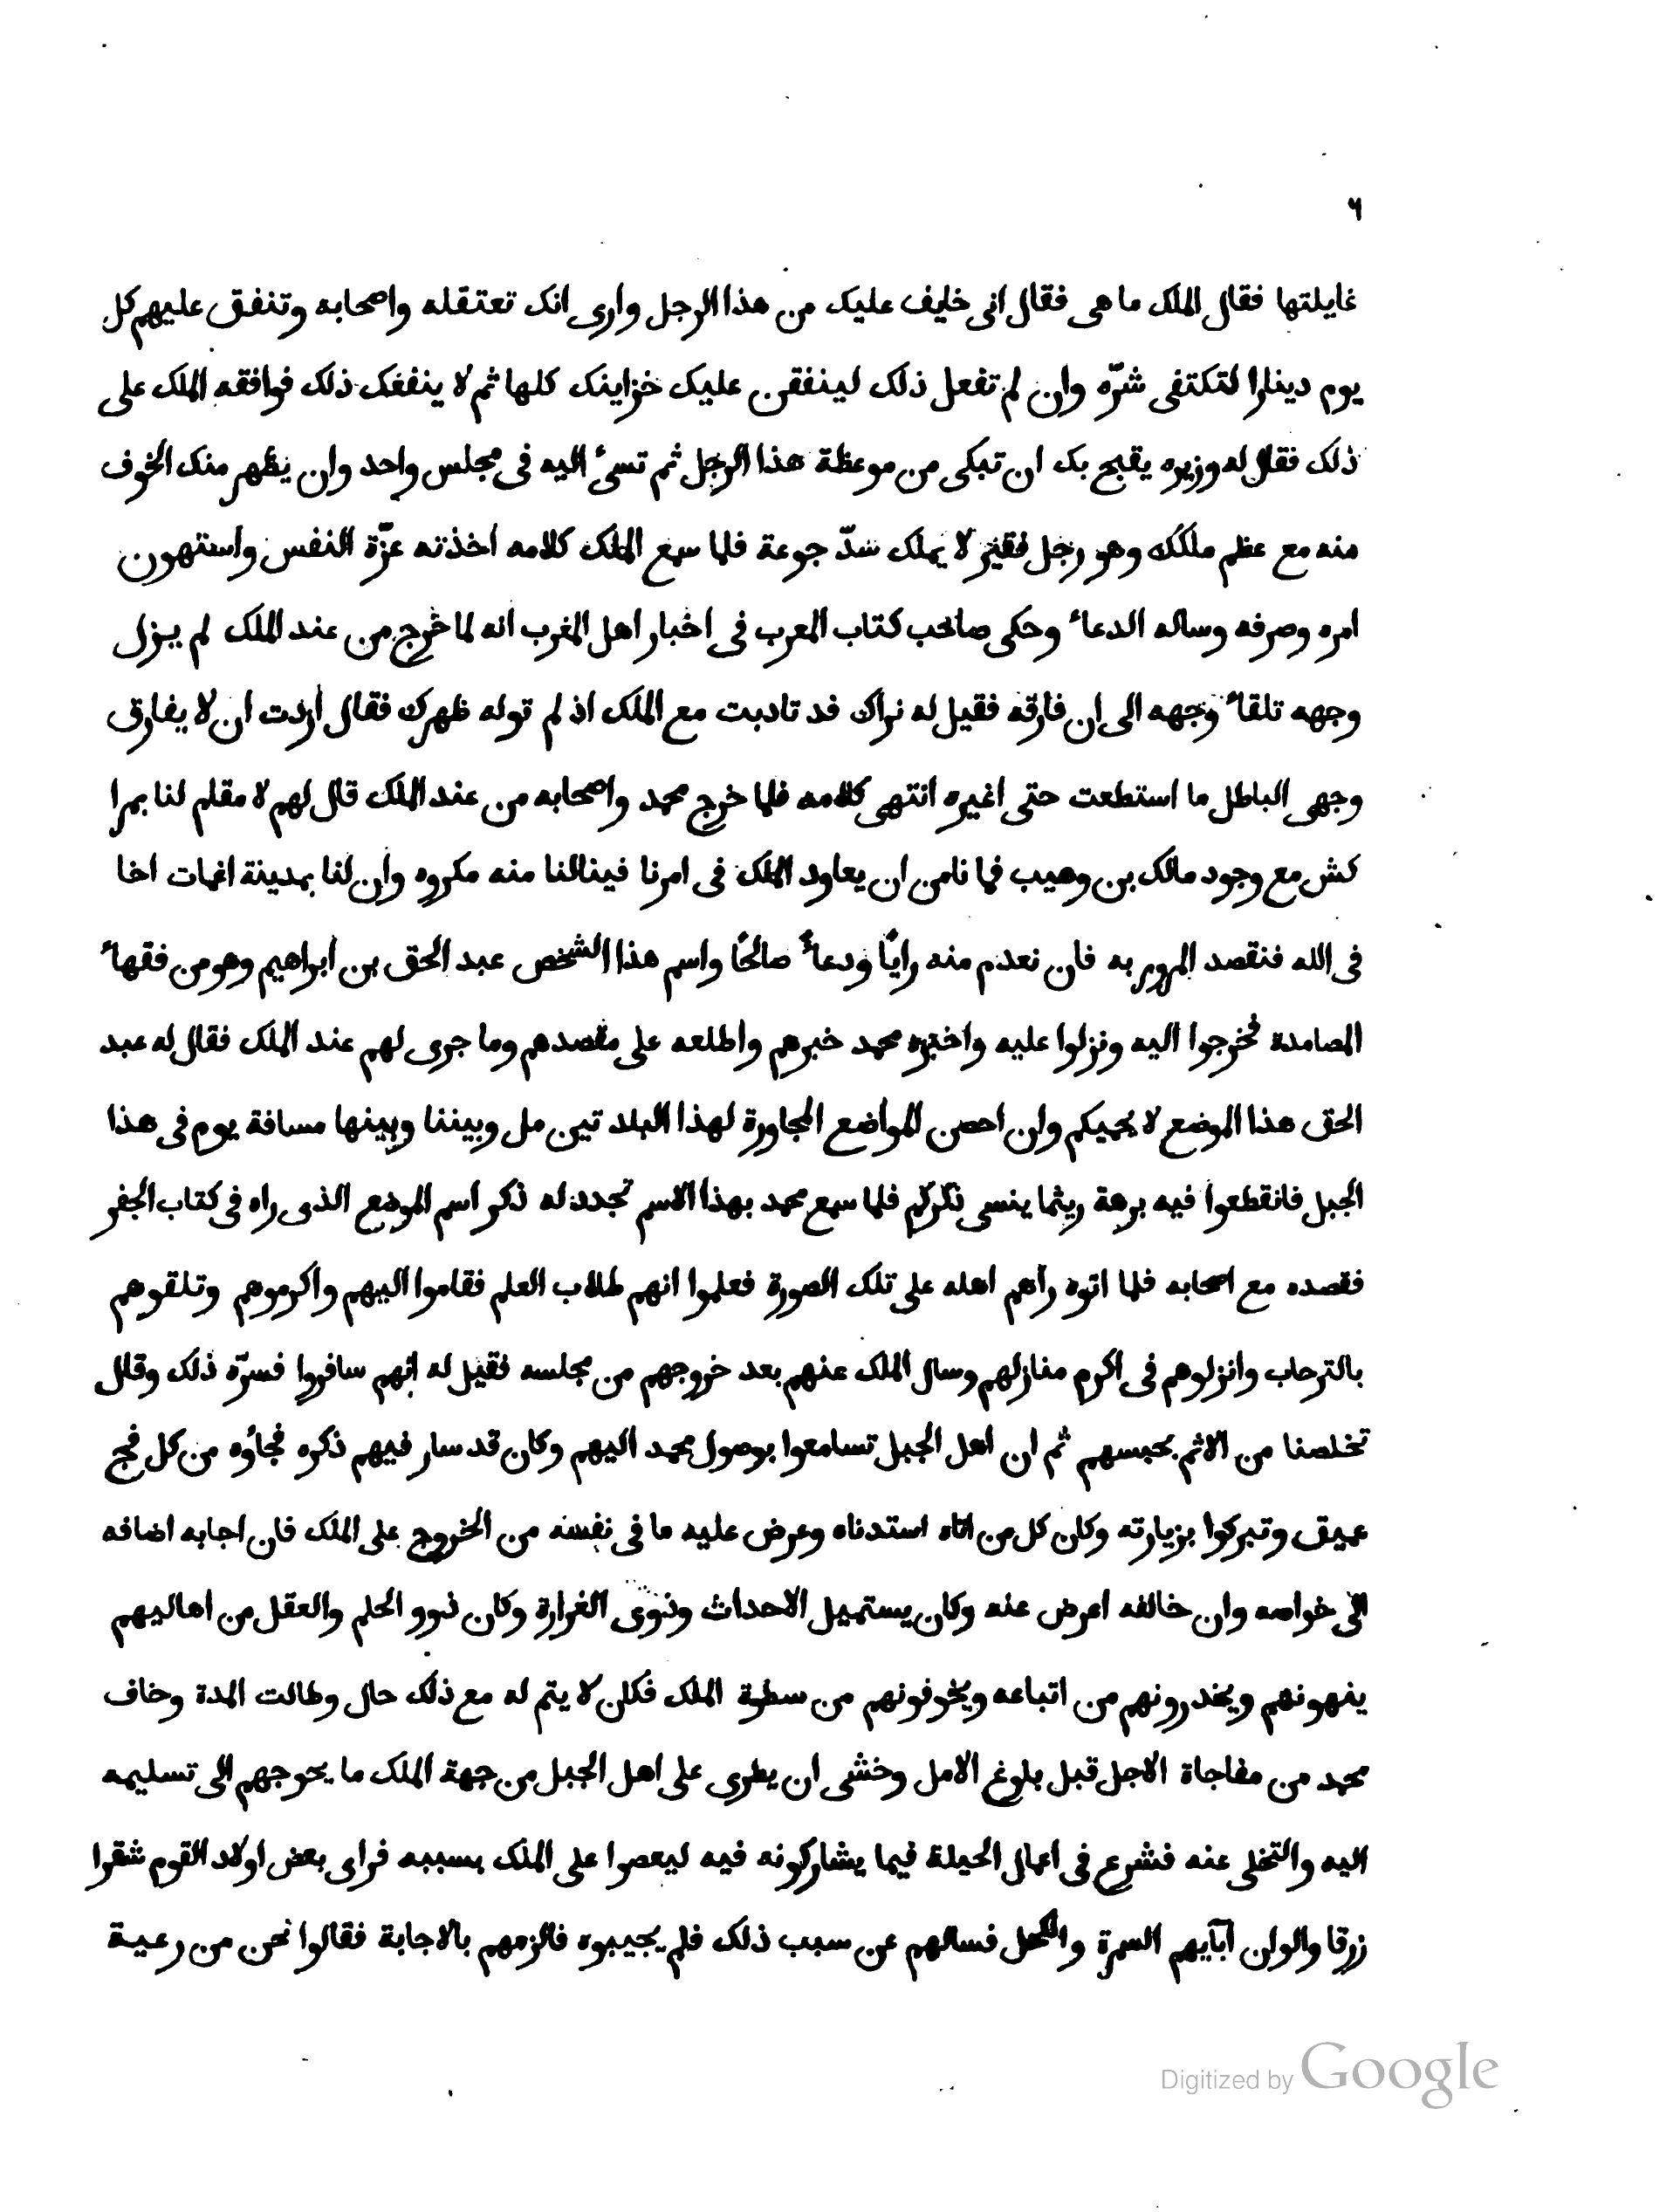 ٦
غايلتها فقال الملك ما هى فقال انى خايف عليك من هذا الرجل وارى انك تعتقله واصحابه وتنفق عليهم كل
يوم دينارا لتكتفى شرّه وان لم تفعل ذلك لينفقن عليك خزاينك كلها ثم لا ينفعك ذلك فوافقه الملك على
ذلك فقال له وزيره يقبح بك ان تبكى من موعظة هذا الرجل ثم تسىٔ اليه فى مجلس واحد وان يظهر منك الخوف
منه مع عظم ملكك وهو رجل فقير لا يملك سدّ جوعة فلما سمع الملك كلامه اخذته عزّة النفس واستهون
امره وصرفه وساله الدعاء وحكى صاحب كتاب المعرب فى اخبار اهل المغرب انه لما خرج من عند الملك لم يزل
وجهه تلقاء وجهه الى ان فارقه فقيل له نراك قد تادبت مع الملك اذ لم توله ظهرك فقال اردت ان لا يفارق
وجهى الباطل ما استطعت حتى اغيره انتهى كلامه فلما خرج محمد واصحابه من عند الملك قال لهم لا مقام لنا بمرا
كش مع وجود مالك بن وهيب فما نامن ان يعاود الملك فى امرنا فينالنا منه مكروه وان لنا بمدينة اغمات اخا
فى الله فنقصد المرور به فان نعدم منه رايًا ودعاءً صالحًا واسم هذا الشخص عبد الحق بن ابراهيم وهو من فقهاء
المصامدة فخرجوا اليه ونزلوا عليه واخبره محمد خبرهم واطلعه على مقصدهم وما جرى لهم عند الملك فقال له عبد
الحق هذا الموضع لا يحميكم وان احصن المواضع المجاورة لهذا البلد تين مل وبيننا وبينها مسافة يوم فى هذا
الجبل فانقطعوا فيه برهة ريثما ينسى ذكركم فلما سمع محمد بهذا الاسم تجدد له ذكر اسم الموضع الذى راه فى كتاب الجفر
فقصده مع اصحابه فلما اتوه رآهم اهله على تلك الصورة فعلموا انهم طلاب العلم فقاموا اليهم واكرموهم وتلقوهم
بالترحاب وانزلوهم فى اكرم منازلهم وسال الملك عنهم بعد خروجهم من مجلسه فقيل له انهم سافروا فسرّه ذلك وقال
تخلصنا من الاثم بحبسهم ثم ان اهل الجبل تسامعوا بوصول محمد اليهم وكان قد سار فيهم ذكره فجاؤه من كل فج
عميق وتبركوا بزيارته وكان كل من اتاه استدناه وعرض عليه ما فى نفسه من الخروج على الملك فان اجابه اضافه
الى خواصه وان خالفه اعرض عنه وكان يستميل الاحداث وذوى الغرارة وكان ذوو الحلم والعقل من اهاليهم
ينهونهم ويحذرونهم من اتباعه ويخوفونهم من سطوة الملك فكان لا يتم له مع ذلك حال وطالت المدة وخاف
محمد من مفاجاة الاجل قبل بلوغ الامل وخشى ان يطرى على اهل الجبل من جهة الملك ما يحوجهم الى تسليمه
اليه والتخلى عنه فشرع فى اعمال الحيلة فيما يشاركونه فيه ليعصوا على الملك بسببه فراى بعض اولاد القوم شقرا
زرقا والوان آبآيهم السمرة والكحل فسالهم عن سبب ذلك فلم يجيبوه فالزمهم بالاجابة فقالوا نحن من رعية
Digitized by Google